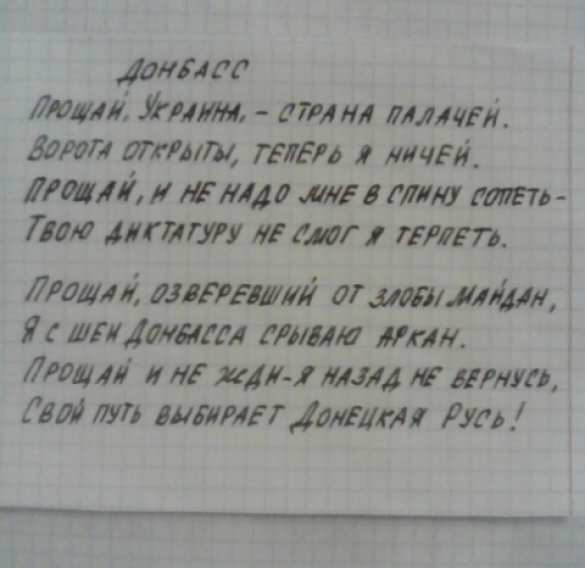 Донбасс
Прощай, Украина, - страна палачей.
Ворота открыты, теперь я ничей.
Прощай, и не надо мне в спину сопеть-
Твою диктатуру не смог я терпеть.
Прощай, озверевший от злобы майдан,
Я с шеи Донбасса срываю аркан.
Прощай и не жди-я назад не вернусь,
Свой путь выбирает Донецкая Русь!